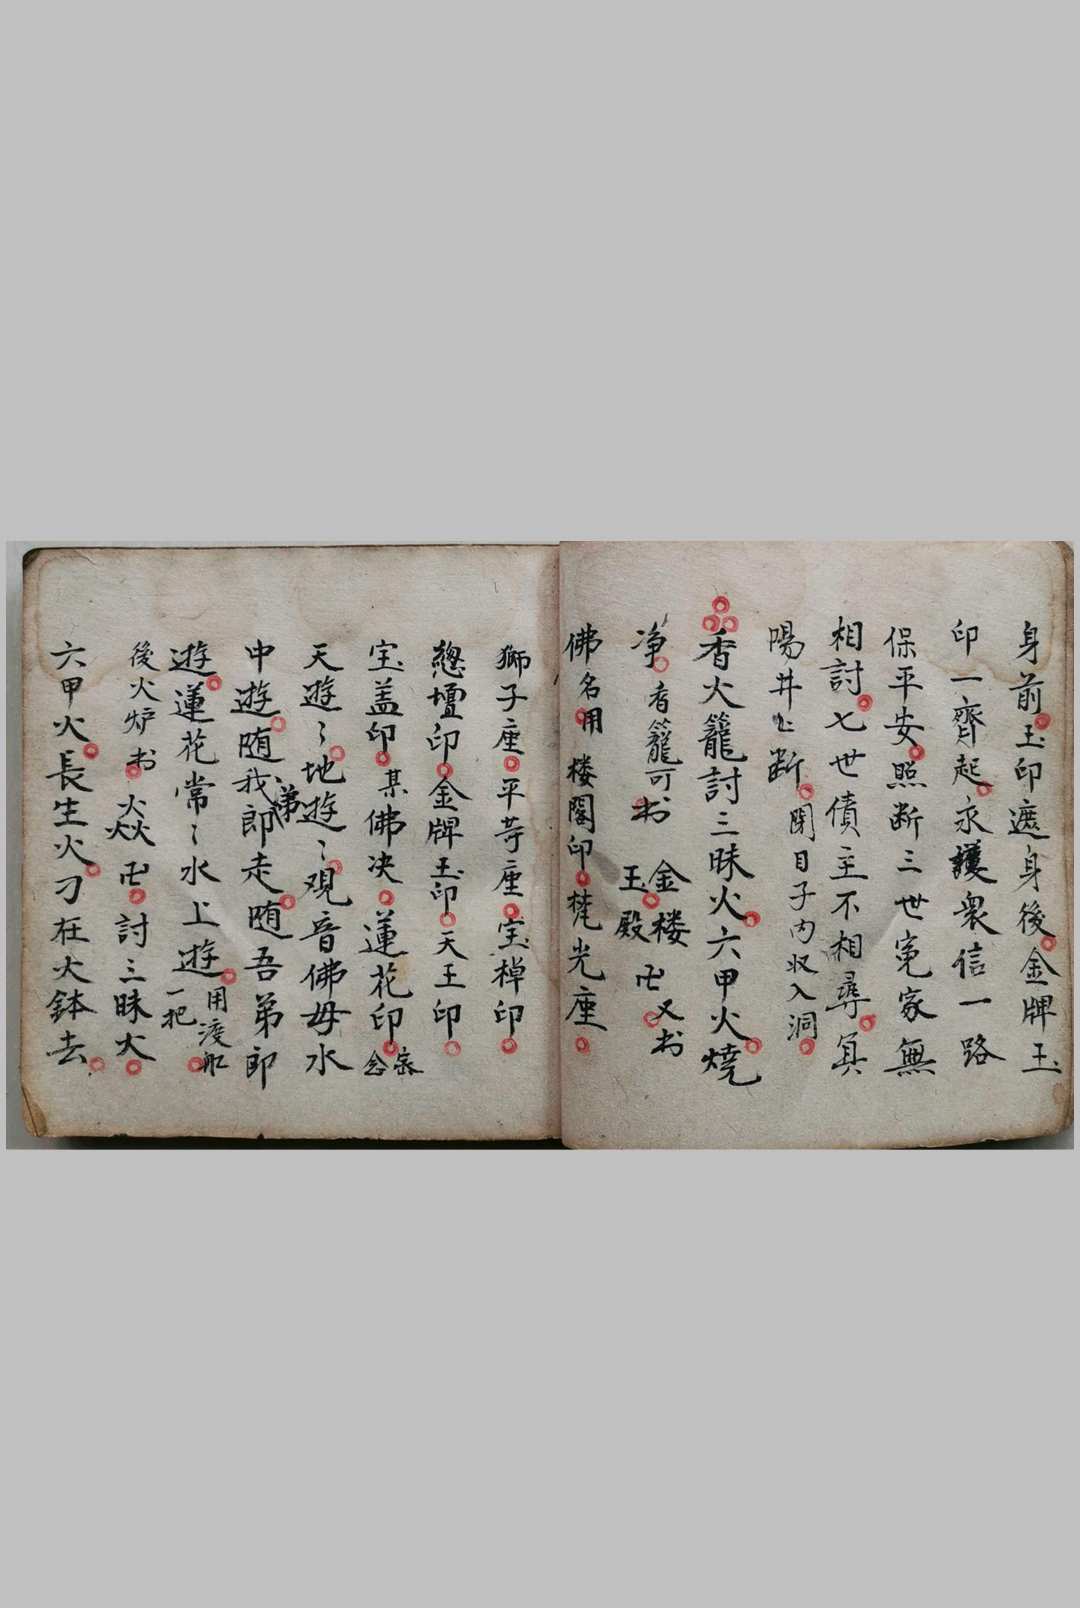 身前玉印遮身後金牌玉
印一齊起永護衆信一路
保平安照断三世冤家無
相討七世債主不相尋冥
陽井上断 閉目子内収入洞
香火籠討三昧火六甲火燒
净 香籠可书 金楼玉殿 卍 又书
佛名用 楼閣印梵光座
獅子座平䓁座宝棹印
總壇印金牌玉印天王印
宝盖印某佛决蓮花印
天遊〻地遊〻观音佛母水
中遊随我郎走随吾弟郎
遊蓮花常〻水上遊 一把 用渡船
後火炉书 火焱 卍 討三昧火
六甲火長生火刁在火鉢去